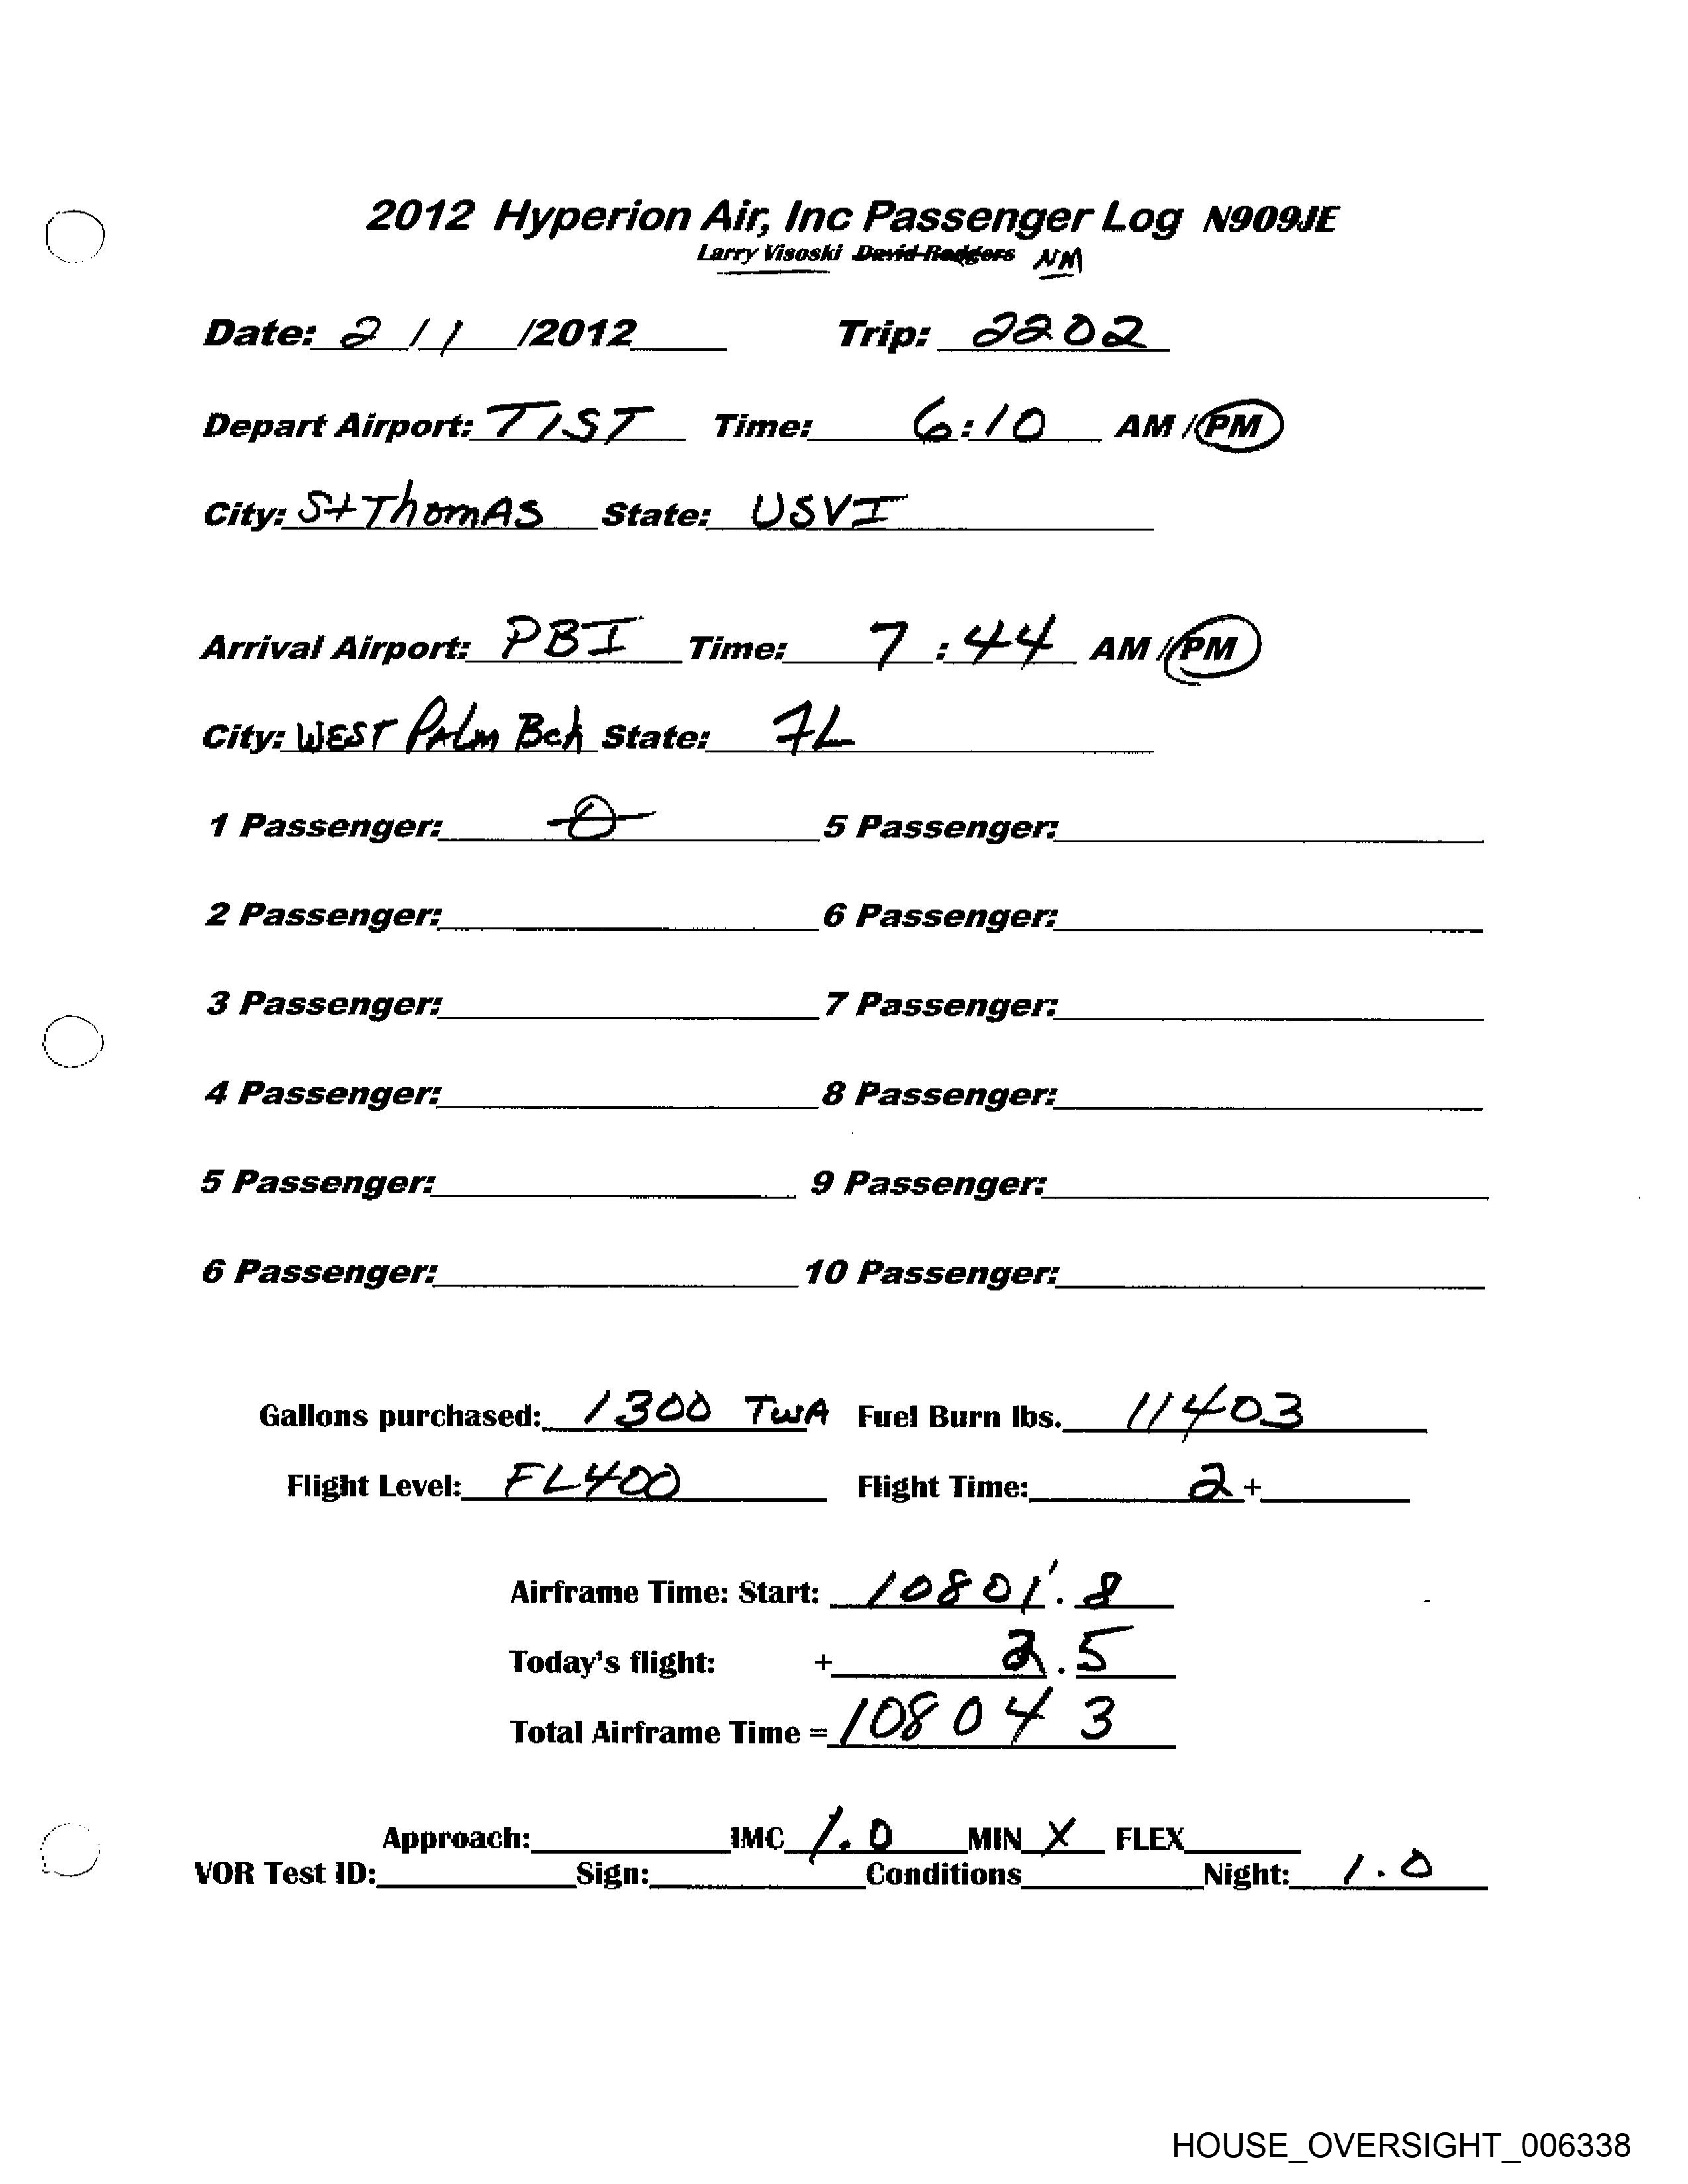 2012 Hyperion Air, Inc Passenger Log N909JE
Larry Visoski David Rodgers NM
Date: 2 / 1 /2012 Trip: 2202
Depart Airport: TIST Time: 6:10 AM / PM
City: St Thomas State: USVI
Arrival Airport: PBI Time: 7:44 AM / PM
City: WEST PALm Bch State: FL
1 Passenger: 0 5 Passenger:
2 Passenger: 6 Passenger:
3 Passenger: 7 Passenger:
4 Passenger: 8 Passenger:
5 Passenger: 9 Passenger:
6 Passenger: 10 Passenger:
Gallons purchased: 1300 TWA Fuel Burn lbs. 11403
Flight Level: FL400 Flight Time: 2+
Airframe Time: Start: 10801.8
Today's flight: + 2.5
Total Airframe Time = 10804 3
Approach: IMC 1.0 MIN X FLEX
VOR Test ID: Sign: Conditions Night: 1.0
HOUSE_OVERSIGHT_006338